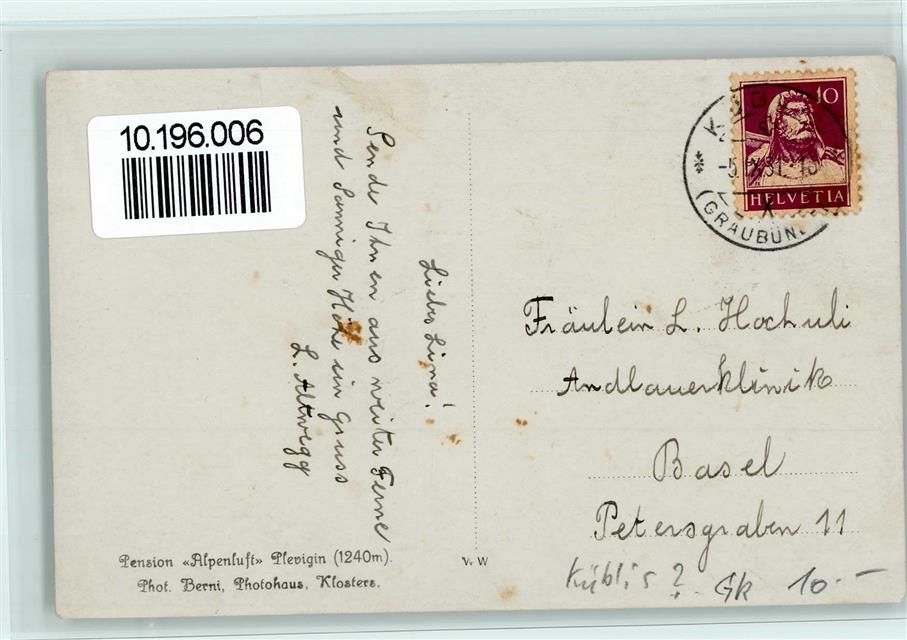 10.196.006
Liebe Lina!
Sende Ihnen aus weiter Ferne
und Sonniger Höhe ein Gruss
L. Altwegg
10
HELVETIA
(GRAUBÜN
Fräulein L. Hochuli
Andlauerklinik
Basel
Petersgraben 11
Pension «Alpenluft» Plevigin (1240m).
Phot. Berni, Photohaus, Klosters.
V. W
Küblis? Gk 10.-